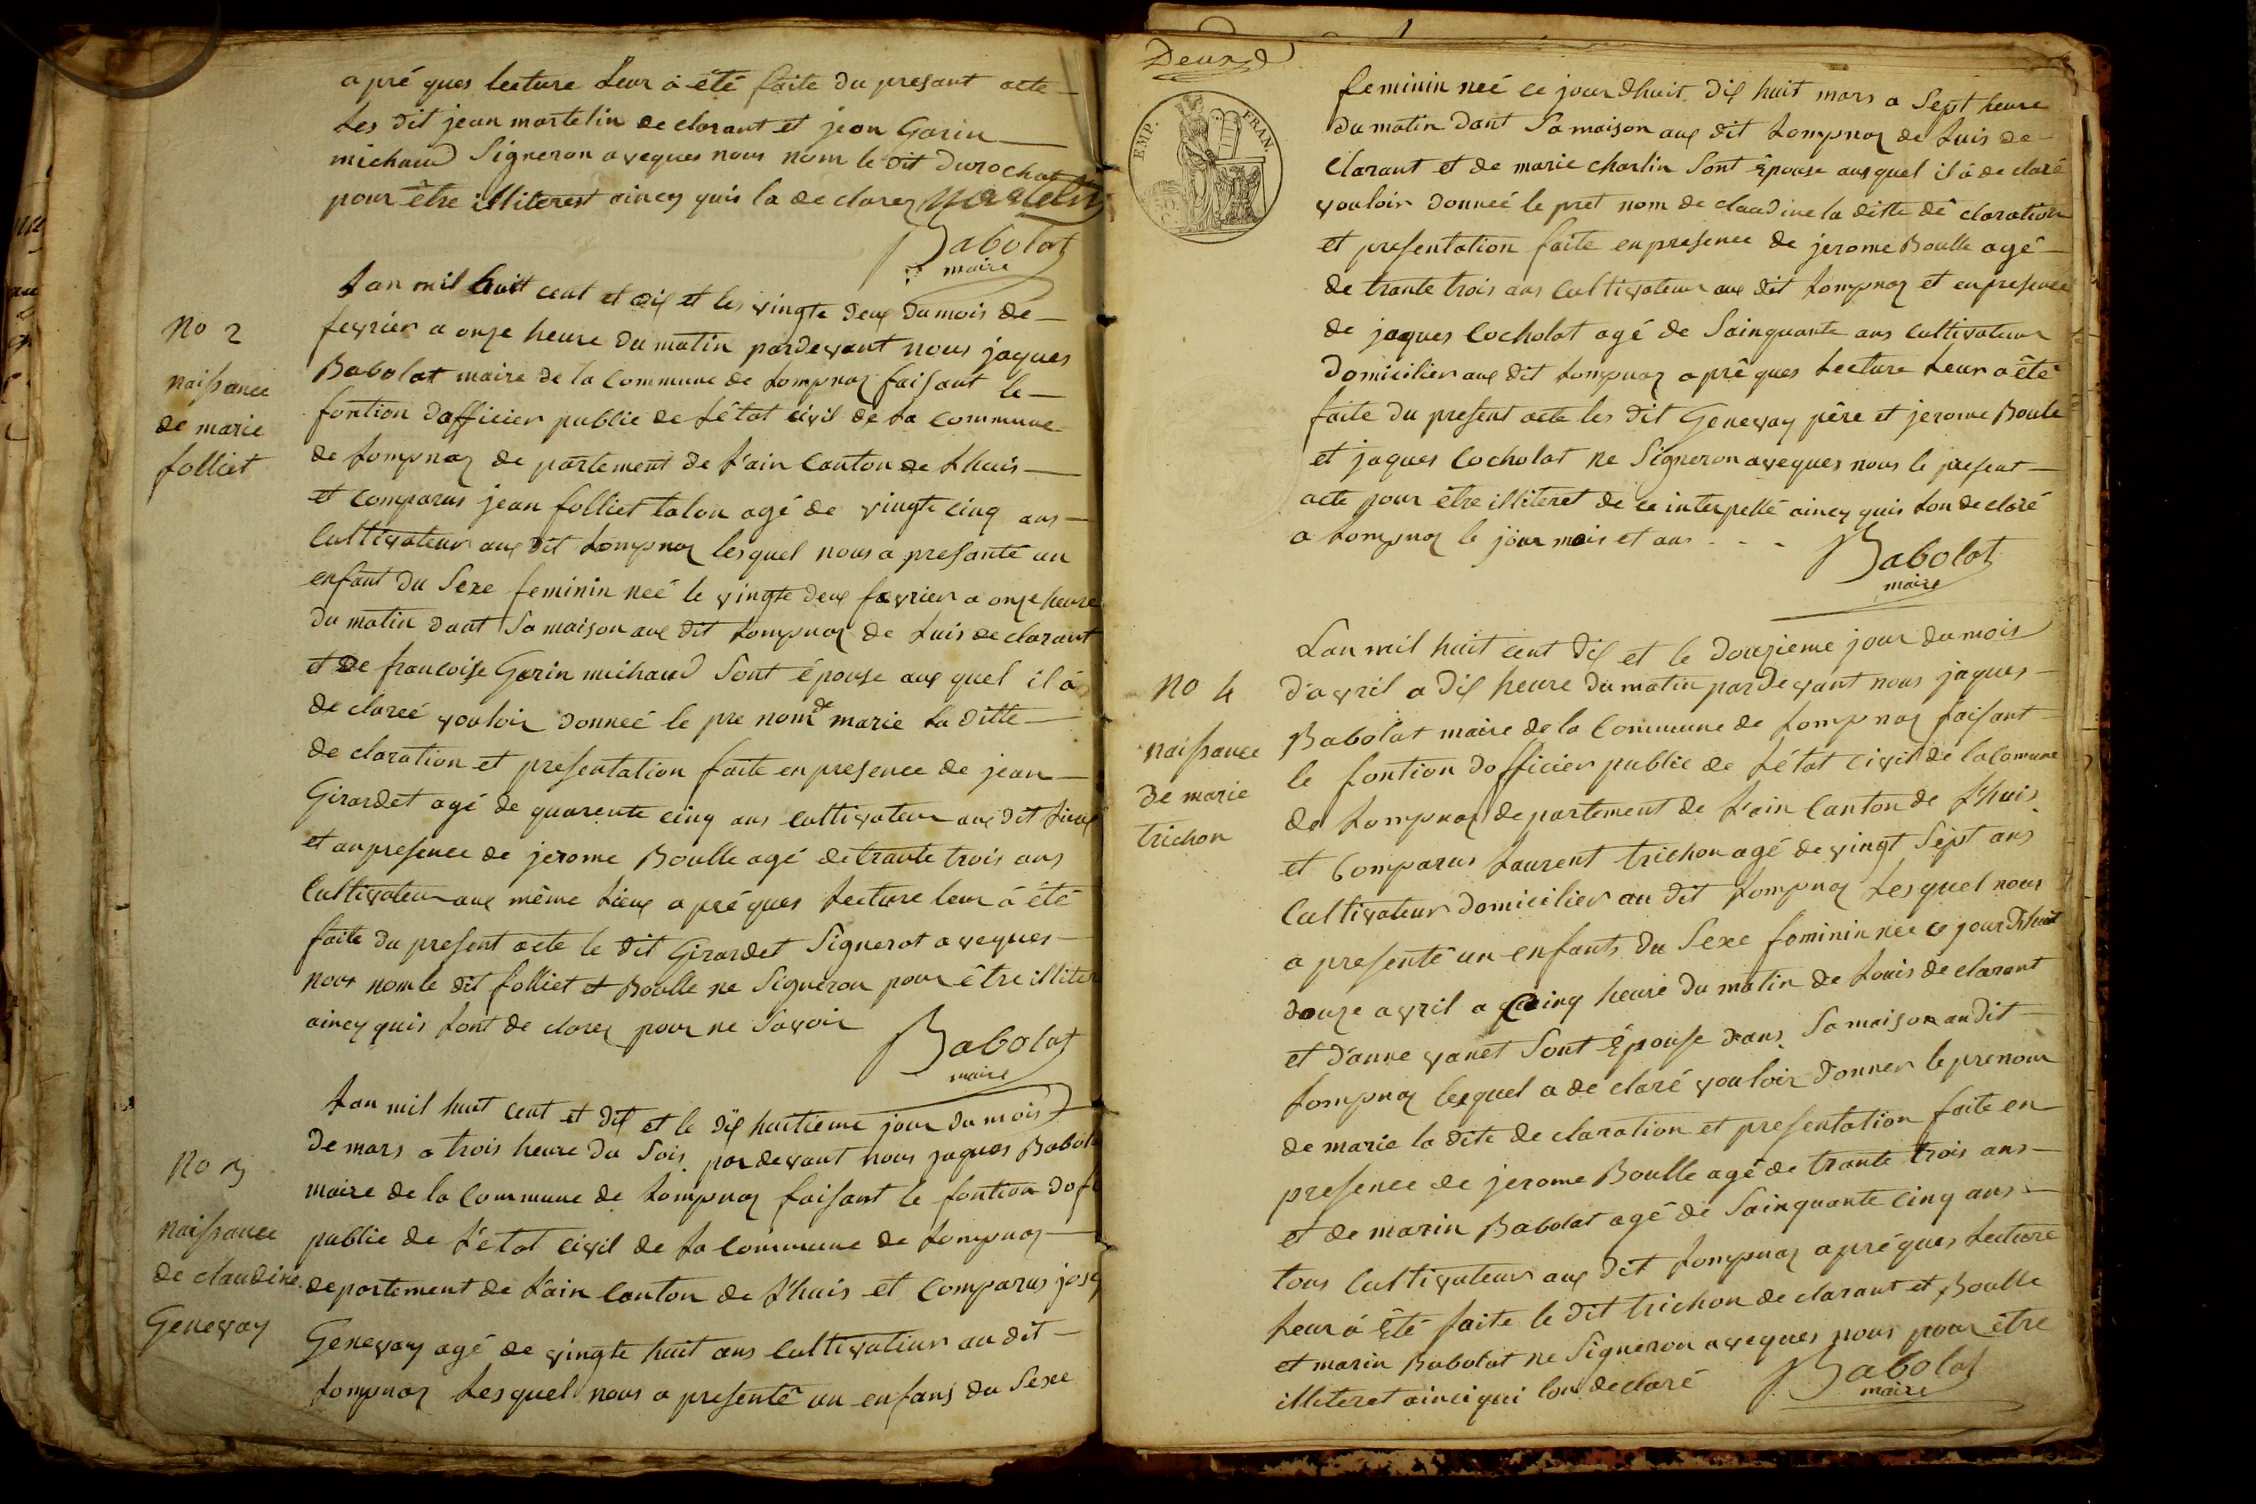 apré ques lecture Leur à été faite du presant acte
Les dit jean martelin declarant et jean Garin
michaud Signeron aveques nous nom le dit durochat
pour être illiterest aincy quis la declarez martelin
Babolat
maire
No 2
naissance
de marie
folliet
Lan mil huit cent et dix et les vingte deux du mois de
fevrier a onze heure du matin pardevant nous jaques
Babolat maire de la Commune de Lompnaz faisant le
fontion dofficier public de Létat civil de La commune
de Lompnaz de partement de L'ain Canton de Lhuis
et Comparus jean folliet talon agé de vingte cinq ans
Cultivateur aux dit Lompnaz lesquel nous a presanté un
enfant du Sexe feminin neé le vingte deux favrier a onze heure
du matin dant Sa maison aux dit Lompnaz de Luis declarant
et de francoise Garin michaud Sont épouse aux quel il à
de clareé vouloir donneé le pre nom de marie La ditte
de claration et presentation faite en presence de jean
Girardet agé de quarente cinq ans cultivateur aux dit Lieux
et anpresence de jerome Boulle agé de trante trois ans
Cultivateur aux même Lieux apré ques Lecture leur à été
faite du present acte le dit Girardet Signerot aveques
nous nom le dit folliet et Boulle ne Signeron pour être illiter
aincy quis Lont de clarez pour ne Savoir
Babolat
maire
No 3
naissance
de claudine
Genevay
Lan mil huit cent et dix et le dix huitieme jour du mois
de mars a trois heure du Soir pardevant nous jaques Babola
maire de la Commune de Lompnaz faisant le fontion dof
public de L'état civil de La commune de Lompnaz
departement de L'ain Canton de Lhuis et Comparus jose
Genevay agé de vingte huit ans Cultivateur au dit
Lompnaz Lesquel nous a presenté un enfans du Sexe
Deux
EMP. FRAN.
feminin neé ce jour dhuit dix huit mars a Sept heure
du matin dant Sa maison aux dit Lompnaz de Luis de
Clarant et de marie charlin Sont Epouse auxquel il à de claré
vouloir donneé le pret nom de claudine la ditte dé claration
et presentation faite en presence de jerome Boulle agé
de trante trois ans Cultivateur aux dit Lompnaz et en presence
de jaques Cocholat agé de Sainquante ans Cultivateur
domicilier aux dit Lompnaz apré ques Lecture Leur a été
faite du present acte les dit Genevay père et jerome Boule
et jaques Cocholat ne Signeron aveques nous le present
acte pour être illiteret de ce interpellé aincy quis Lon declaré
a Lompnaz le jour mois et ans
Babolat
maire
No 4
naissance
de marie
trichon
Lan mil huit cent dix et le douzieme jour du mois
d'avril a dix heure du matin pardevant nous jaques
Babolat maire de la Commune de Lompnaz faisant
le fontion dofficier public de Létat Civil de la Comune
de Lompnaz departement de L'ain Canton de L'huis
et Comparus Laurent trichon agé de vingt Sept ans
Cultivateur domicilier au dit Lompnaz Lesquel nous
a presenté un enfants du Sexe feminin neé ce jour dhuit
douze avril a Cinq heure du matin de Louis declarant
et d'anne vanet Sont Epouse dans Sa maison au dit
Lompnaz lesquel a de claré vouloir donner le prenom
de marie la dite de claration et presentation faite en
presence de jerome Boulle agé de trante trois ans
et de marin Babolat agé de Sainquante cinq ans
tous Cultivateur aux dit Lompnaz apré ques Lecture
Leur à Eté faite le dit trichon declarant et Boulle
et marin Babolat ne Signeron aveques nous pour être
illiteret ainci qui lon declaré
Babolat
maire